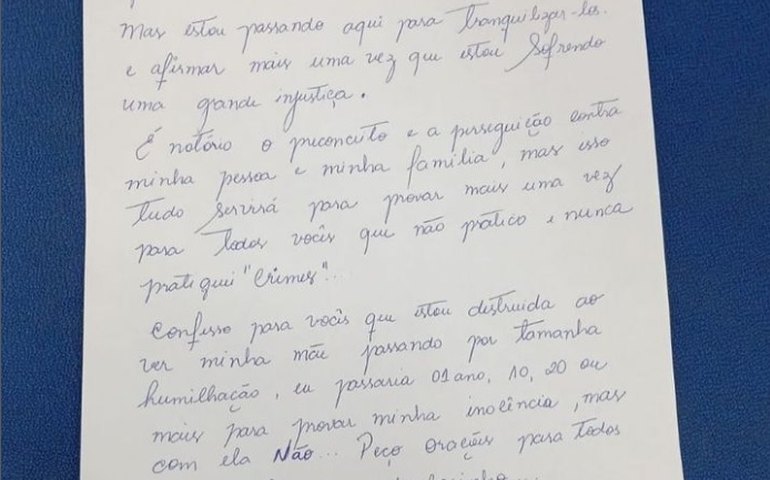 Mas estou passando aqui para tranquilizar-los.
e afirmar mais uma vez que estou sofrendo
uma grande injustiça.
É notório o preconceito e a perseguição contra
minha pessoa e minha família, mas isso
tudo servirá para provar mais uma vez
para todos vocês que não pratico e nunca
pratiquei "crimes"...
Confesso para vocês que estou destruida ao
ver minha mãe passando por tamanha
humilhação, eu passaria 01 ano, 10, 20 ou
mais para provar minha inocência, mas
com ela Não... Peço orações para todos